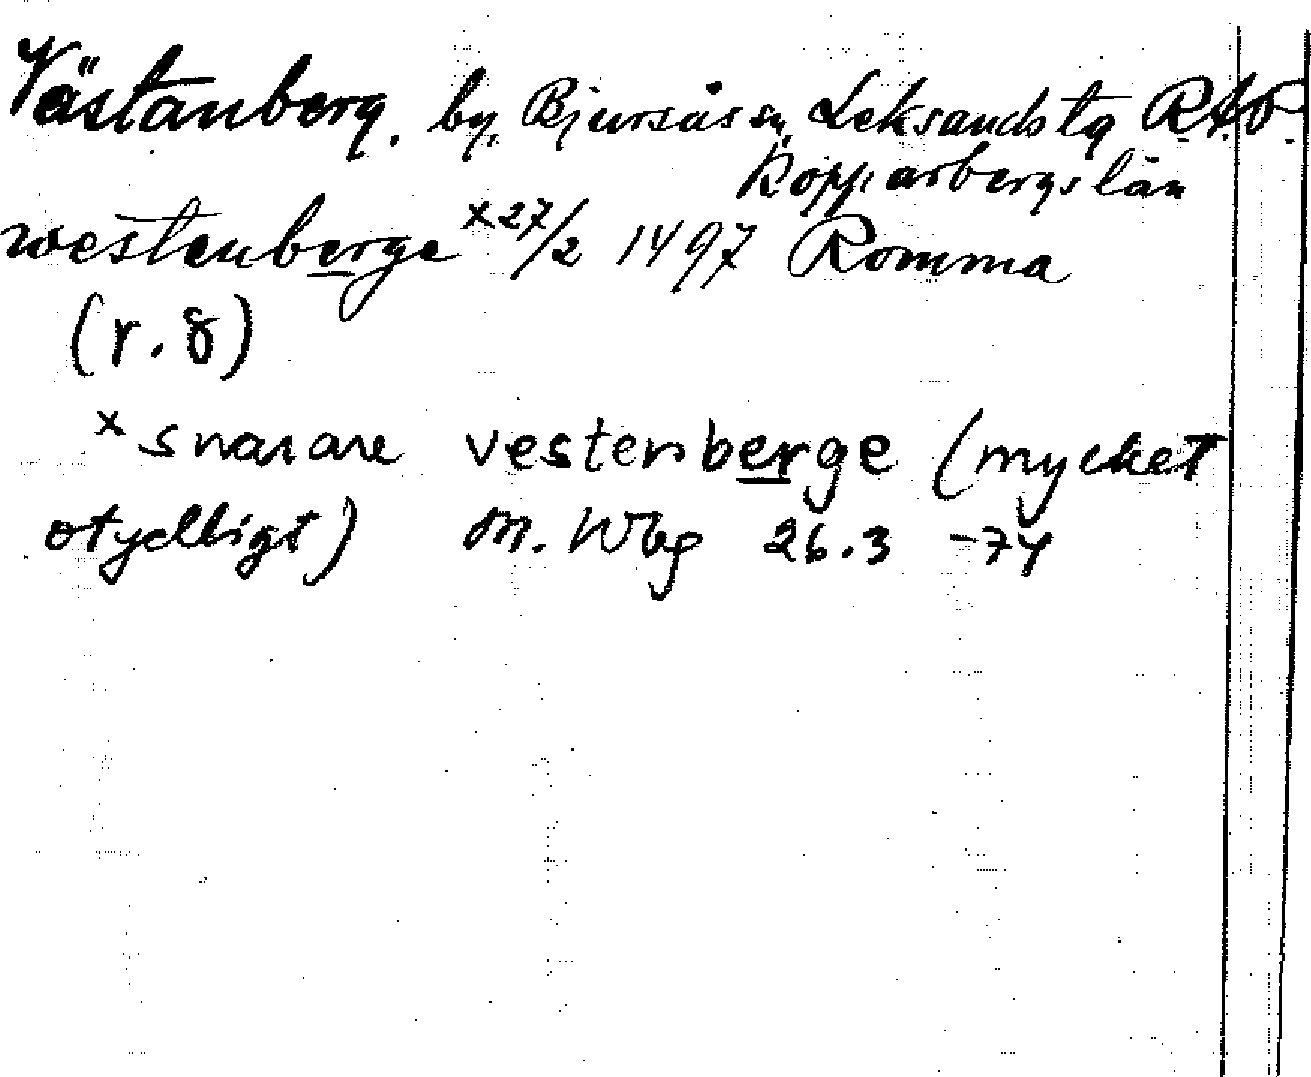 Västanberg. by, Bjursås sn, Leksands tg R.A.P.
Kopparbergs län
westenberge x 27/2 1497 Romma
(r. 8)
x snarare vestenberge (mycket
otydligt) M. Wbg 26.3 -74